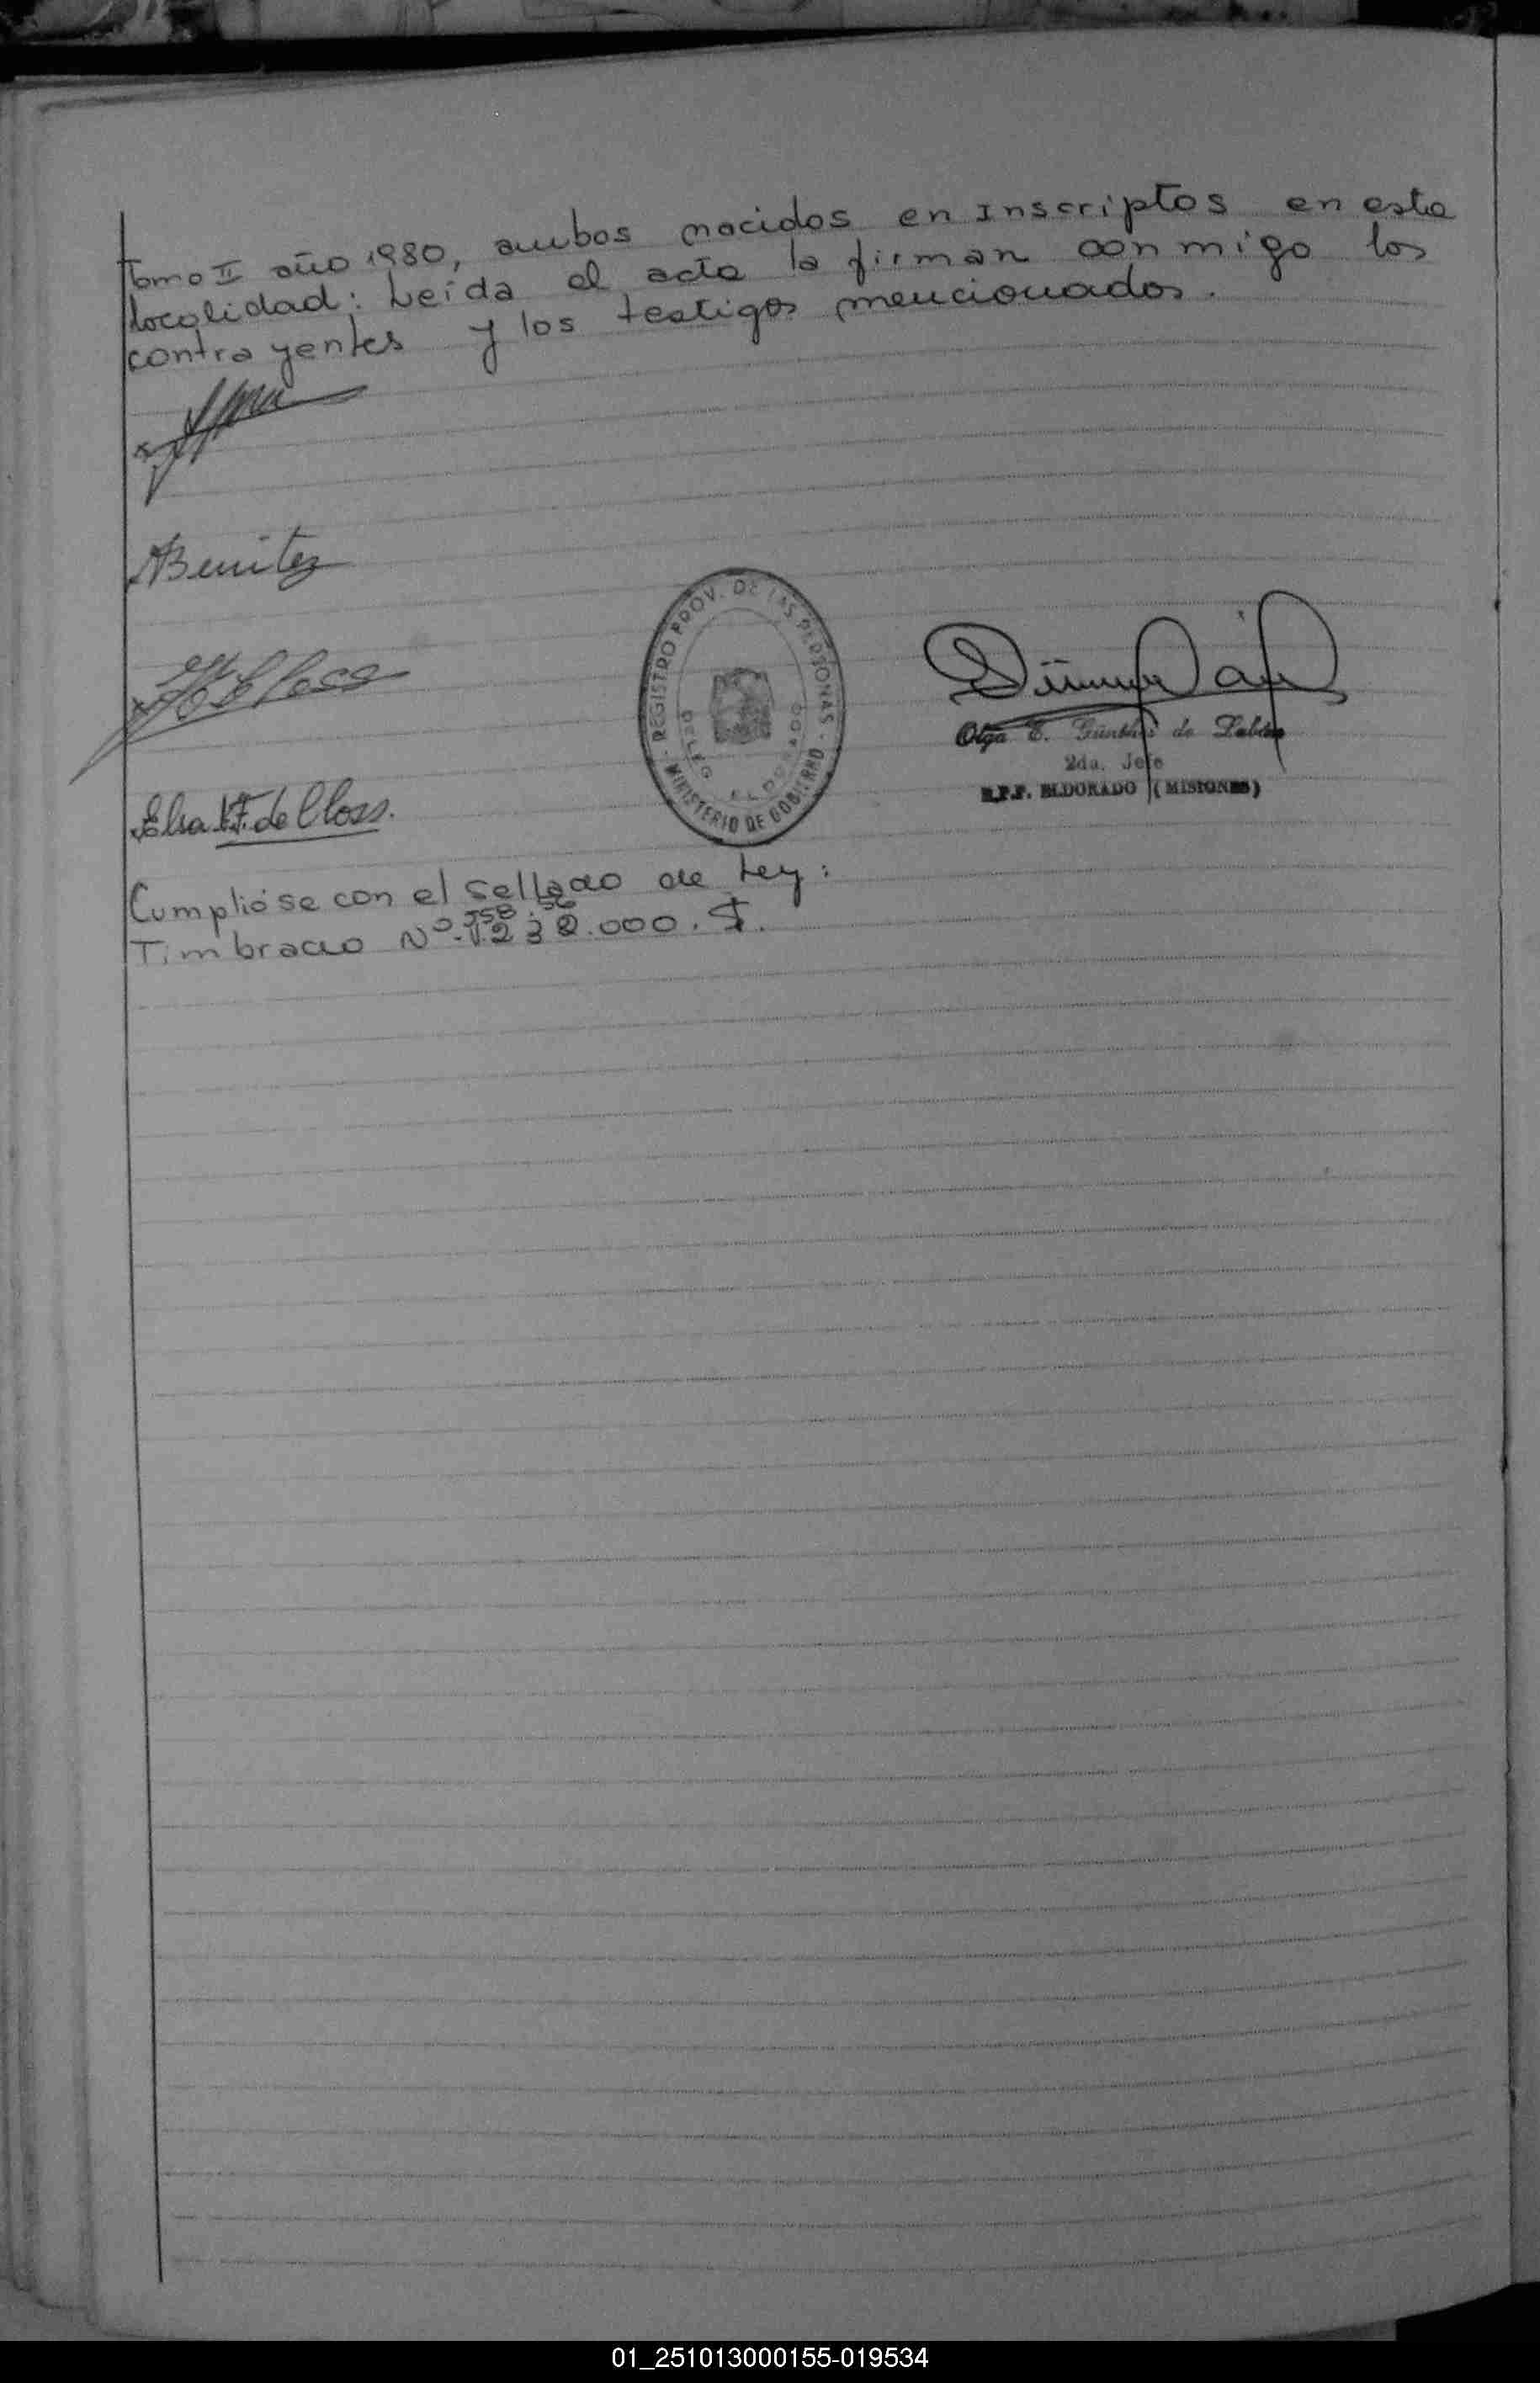 Tomo II año 1980, ambos nacidos en inscriptos en esta
localidad: Leída el acta la firman conmigo los
contrayentes y los testigos mencionados.
ABenitez
Elsa F. de Closs.
REGISTRO PROV. DE LAS PERSONAS - MINISTERIO DE GOBIERNO
DELEG ELDORADO
Olga E. Günther de
2da. Jefe
R.P.P. ELDORADO (MISIONES)
Cumplióse con el sellado de Ley:
Timbrado Nº. .000. $.
01_251013000155-019534